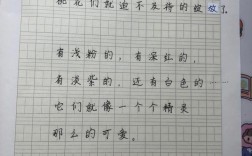 桃花们就迫不及待的绽放了
有浅粉的，有深红的，
有淡紫的，还有白色的
它们就像一个个精灵
那么的可爱。